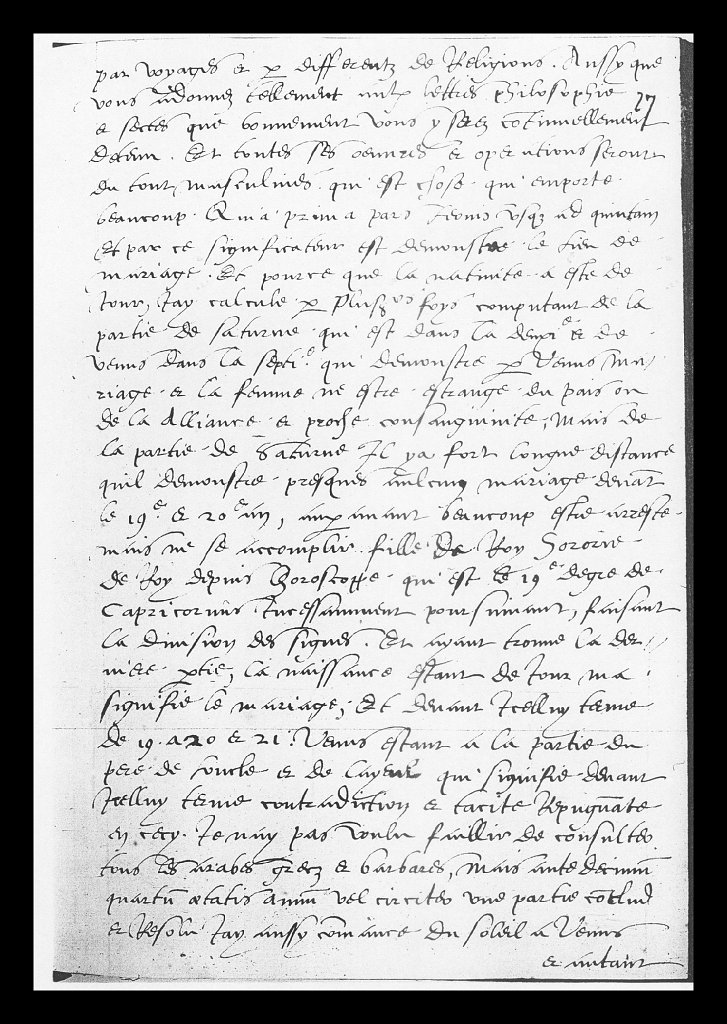 par voyages et p differentz de Religions. Aussy que
vous adonnez tellement aux lettres philosophie
27
et sectes que bonnement vous y serez cotinuellement
detenu. Et toutes ses oeuvres et operations seront
du tout masculines. qui est chose qui emporte.
beaucoup. Quia prima pars usq ad quintam
Et par ce significateur est demonstre le lieu de
mariage. Et pource que la nativite a este de
jour, Jay calcule p Plusrs foys computant de la
partie de saturne qui est dans la et de
venus dans la septie. qui demonstre p Venus ma-
riage et la femme ne estre estrange du pais ou
de la Alliance et proche consanguinite, Mais de
la partie de Saturne Il ya fort longue distance
quil demonstre presques aulcung mariage devat
le 19e et 20e an, auparavant beaucoup estre arreste
mais ne se accomplir. fille de Roy Sororie
de Roy depuis Horoscoppe qui est le 19e degre de
Capricornus Incessamment poursuivant, faisant
la division des signes. Et ayant trouve la der-
niere ptie, la naissance estant de jour ma
signifie le mariage, Et devant Icelluy terme
de 19. a 20 et 21. Venus estant a la partie du
pere de loncle et de layeul qui signifie devant
Icelluy terme contradiction et tacite Repugnate
en cecy. Je nay pas voulu faillir de consulter
tous les arabes grecz et barbares, Mais ante decimu
quartu aetatis annu vel circiter une partie coclud
et Resolu Jay aussy comance du soleil a Venus
et autant